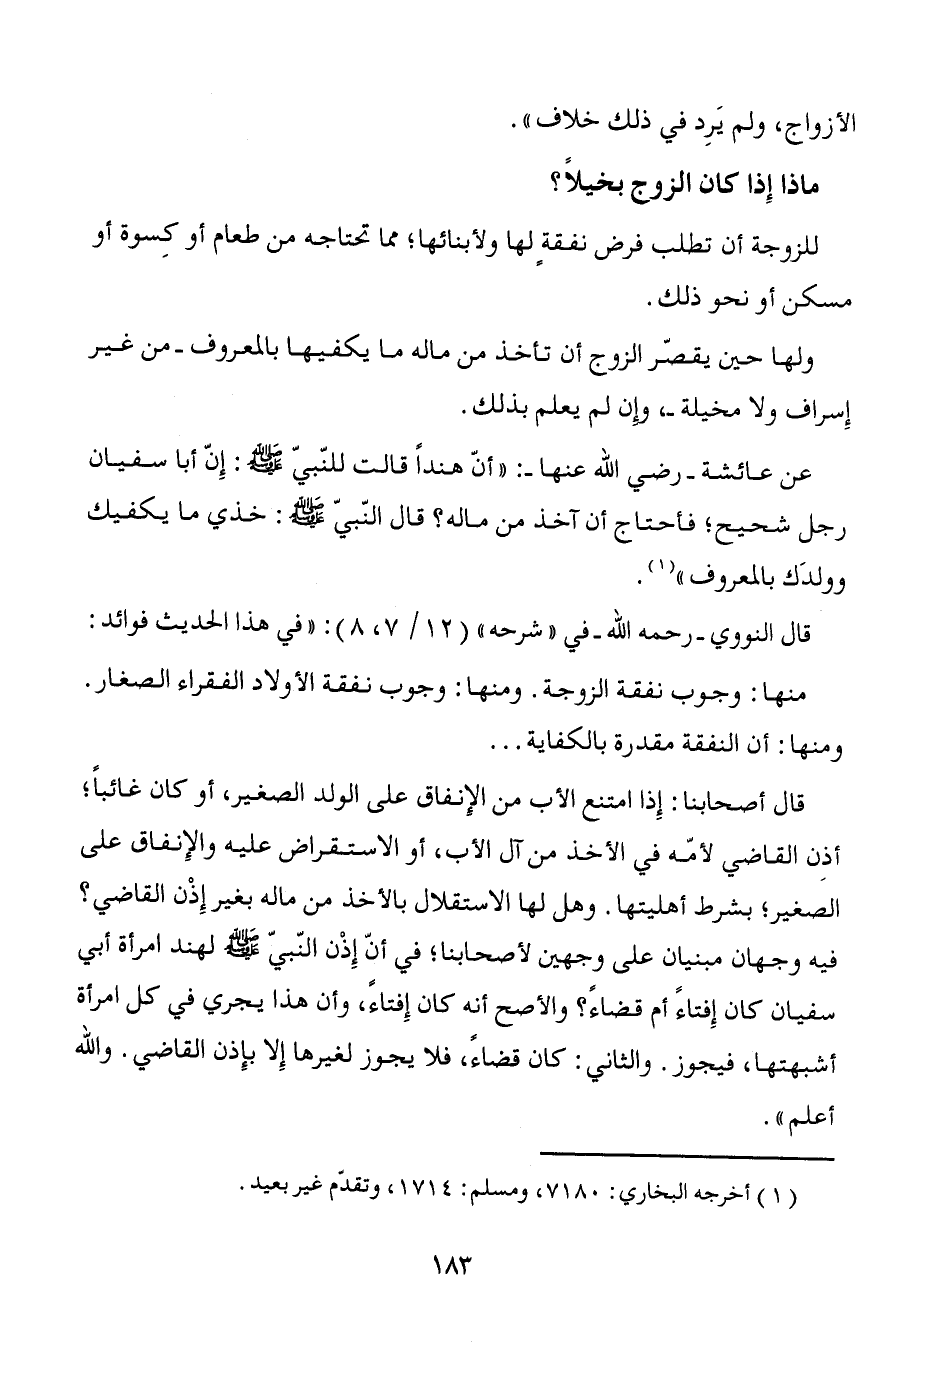 الأزواج، ولم يَرِد في ذلك خلاف».
ماذا إِذا كان الزوج بخيلاً؟
للزوجة أن تطلب فرض نفقةٍ لها ولأبنائها؛ مما تحتاجه من طعام أو كِسوة أو
مسكن أو نحو ذلك.
ولها حين يقصّر الزوج أن تأخذ من ماله ما يكفيها بالمعروف ـ من غير
إِسراف ولا مخيلة ـ، وإِن لم يعلم بذلك.
عن عائشة ـ رضي الله عنها ـ: «أنّ هنداً قالت للنّبيّ ﷺ: إِنّ أبا سفيان
رجل شحيح؛ فأحتاج أن آخذ من ماله؟ قال النّبيّ ﷺ: خذي ما يكفيك
وولدَك بالمعروف»(١).
قال النووي ـ رحمه الله ـ في «شرحه» (١٢/ ٧، ٨): «في هذا الحديث فوائد:
منها: وجوب نفقة الزوجة. ومنها: وجوب نفقة الأولاد الفقراء الصغار.
ومنها: أن النفقة مقدرة بالكفاية...
قال أصحابنا: إِذا امتنع الأب من الإِنفاق على الولد الصغير، أو كان غائباً؛
أذِن القاضي لأمّه في الأخذ من آل الأب، أو الاستقراض عليه والإِنفاق على
الصغير؛ بشرط أهليتها. وهل لها الاستقلال بالأخذ من ماله بغير إِذْن القاضي؟
فيه وجهان مبنيان على وجهين لأصحابنا؛ في أنّ إِذْن النّبيّ ﷺ لهند امرأة أبي
سفيان كان إِفتاءً أم قضاءً؟ والأصح أنه كان إِفتاءً، وأن هذا يجري في كل امرأة
أشبهتها، فيجوز. والثاني: كان قضاءً، فلا يجوز لغيرها إِلا بإِذن القاضي. والله
أعلم».
(١) أخرجه البخاري: ٧١٨٠، ومسلم: ١٧١٤، وتقدّم غير بعيد.
١٨٣